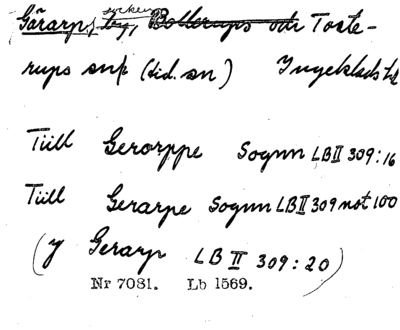 Gärarps socken by, Bollerups och Toste-
rups snp (tid. sn) Ingelstads hd
Tiill Gerorppe Sognn LB II 309:16
Tiill Gerarpe Sognn LB II 309 not 100
(y Gerarp LB II 309:20)
Nr 7081. Lb 1569.